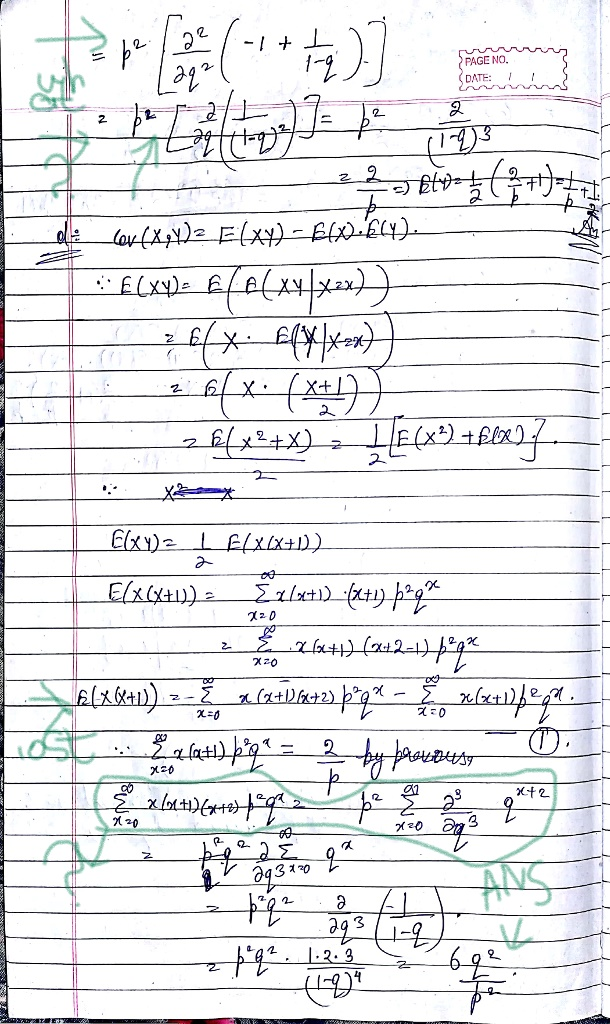 = p² [ ∂²/∂q² ( -1 + 1/(1-q) ) ]
PAGE NO.
DATE: / /
= p² [ ∂/∂q ( 1/(1-q)² ) ] = p² 2/(1-q)³
= 2/p => E(Y) = 1/2 ( 2/p + 1 ) = 1/p + 1/2
Ans
d: Cov(X,Y) = E(XY) - E(X)·E(Y).
∵ E(XY) = E( E(XY | X=x) )
= E( X · E(Y | X=x) )
= E( X · ( (X+1)/2 ) )
= E(X²+X)/2 = 1/2 [ E(X²) + E(X) ].
∵
E(XY) = 1/2 E(X(X+1))
E(X(X+1)) = Σ_{x=0}^{∞} x(x+1) · (x+1) p²q^x
= Σ_{x=0}^{∞} x(x+1) (x+2-1) p²q^x
E(X(X+1)) = - Σ_{x=0}^{∞} x(x+1)(x+2) p²q^x - Σ_{x=0}^{∞} x(x+1) p²q^x.
— ①.
∵ Σ_{x=0}^{∞} x(x+1) p²q^x = 2/p by previous,
Σ_{x=0}^{∞} x(x+1)(x+2) p²q^x = p² Σ_{x=0}^{∞} ∂³/∂q³ q^{x+2}
= p²q² ∂/∂q³ Σ_{x=0}^{∞} q^x
= p²q² ∂/∂q³ ( -1/(1-q) ).
ANS
= p²q² · 1·2·3/(1-q)⁴ = 6q²/p².